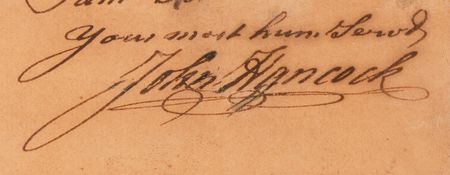 I am
Your most hum Servt
John Hancock